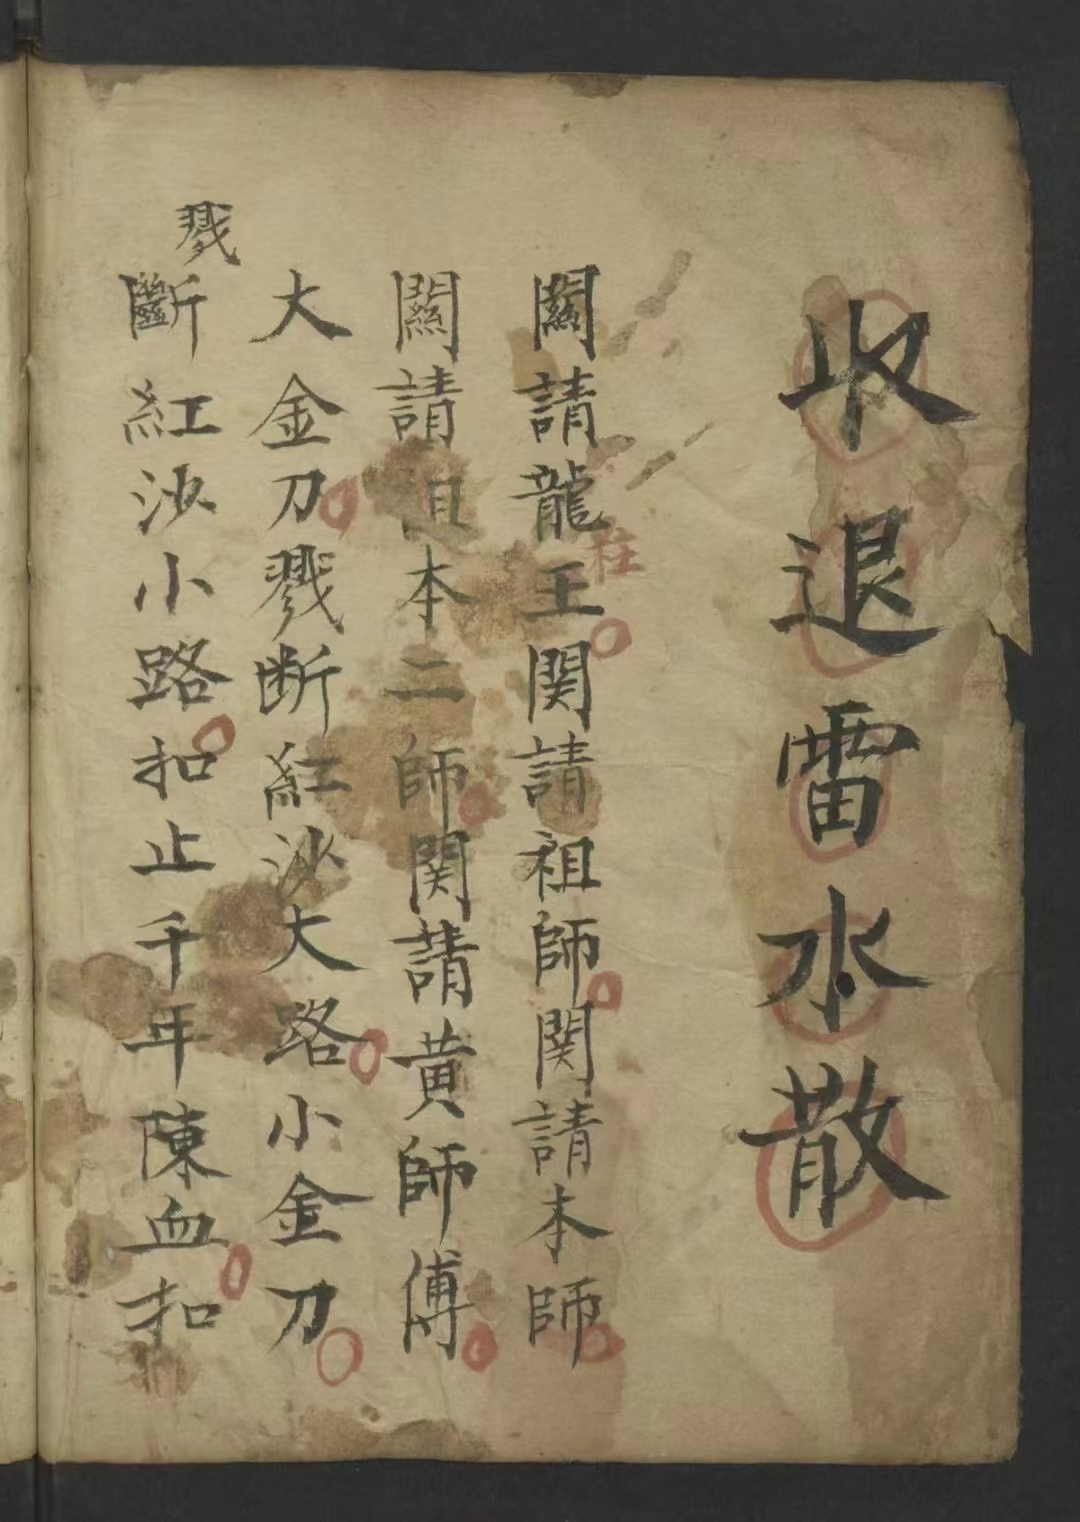 收退雷水散
關請龍王関請祖師関請本師
柱
關請祖本二師関請黃師傅
大金刀戮断紅沙大路小金刀
戮
斷紅沙小路扣止千年陳血扣